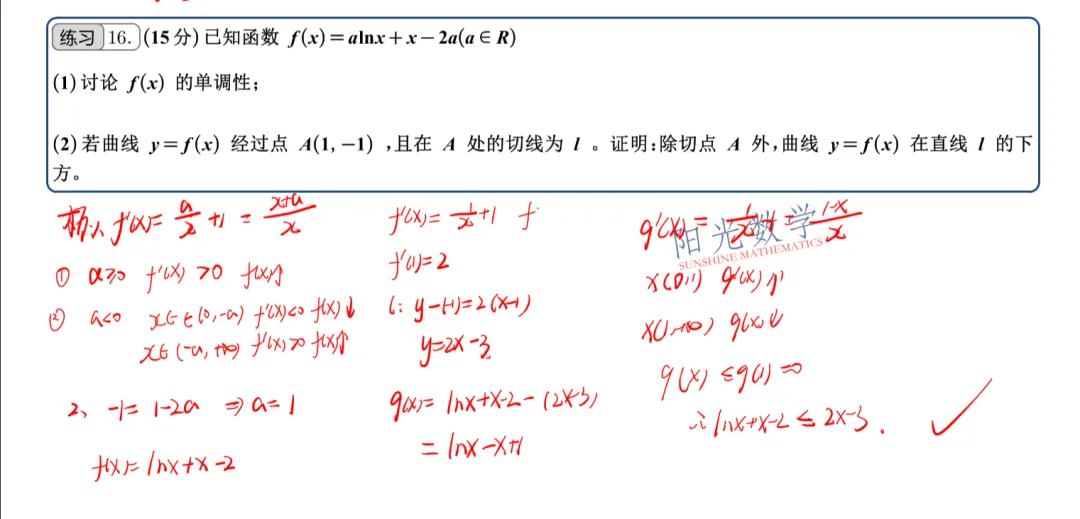 练习 16. (15分) 已知函数 f(x)=alnx+x−2a(a∈R)
(1)讨论 f(x) 的单调性;
(2)若曲线 y=f(x) 经过点 A(1,−1) ,且在 A 处的切线为 l 。证明:除切点 A 外,曲线 y=f(x) 在直线 l 的下
方。
f'(x)=a/x+1=(x+a)/x
① a≥0 f'(x)>0 f(x)↑
② a<0 x∈(0,-a) f'(x)<0 f(x)↓
x∈(-a,+∞) f'(x)>0 f(x)↑
2、 -1=1-2a ⇒a=1
f(x)=lnx+x-2
f'(x)=1/x+1
f'(1)=2
l: y-(-1)=2(x-1)
y=2x-3
g(x)=lnx+x-2-(2x-3)
=lnx-x+1
g'(x)=1/x-1=(1-x)/x
阳光数学
SUNSHINE MATHEMATICS
x(0,1) g(x)↑
x(1,+∞) g(x)↓
g(x)≤g(1)=0
∴lnx+x-2≤2x-3.